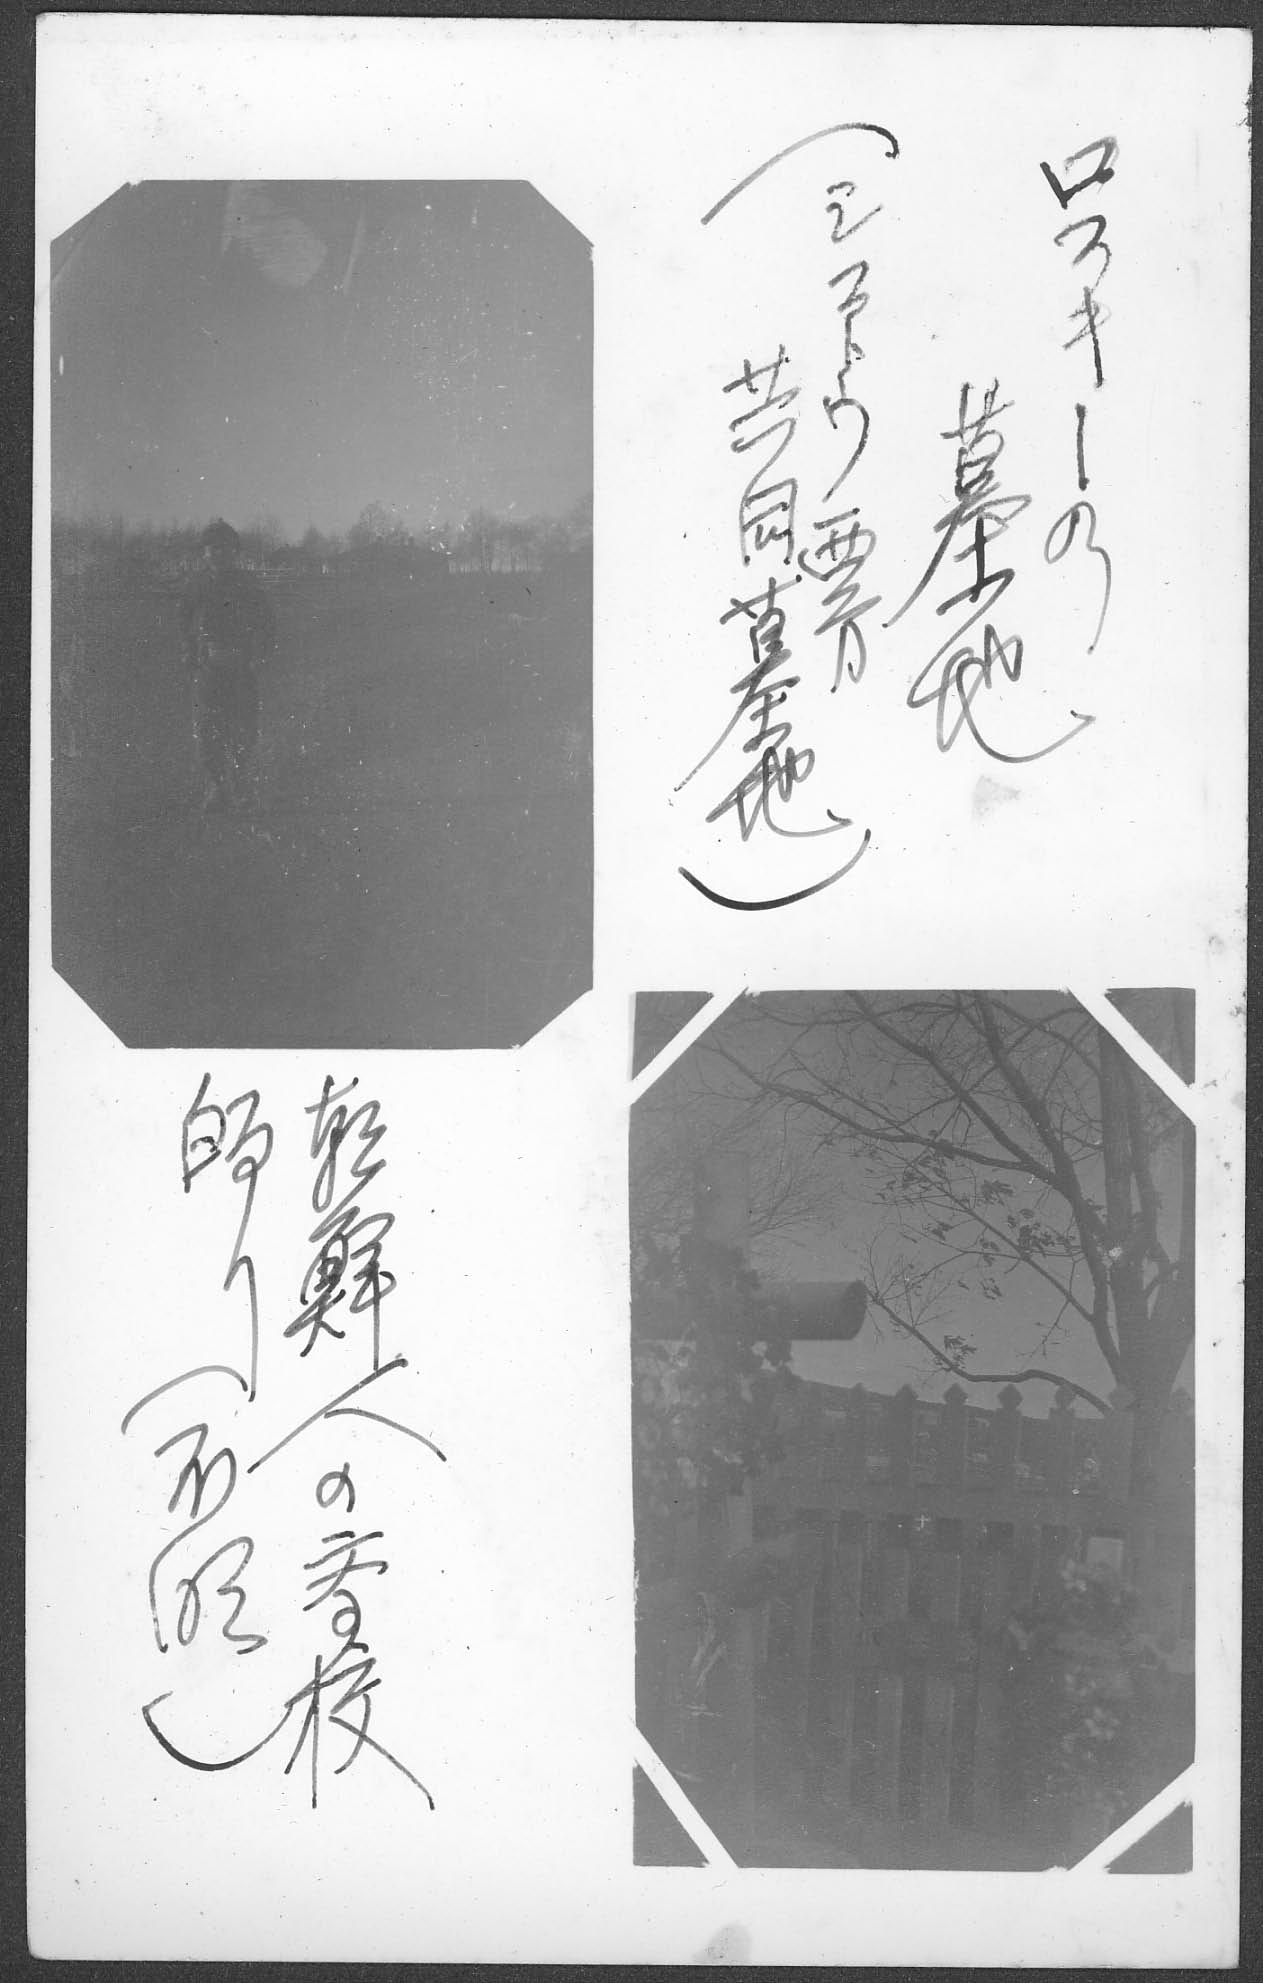 ロスキーの
墓地
西方
共同墓地）
朝鮮人の学校
帰り（不明）